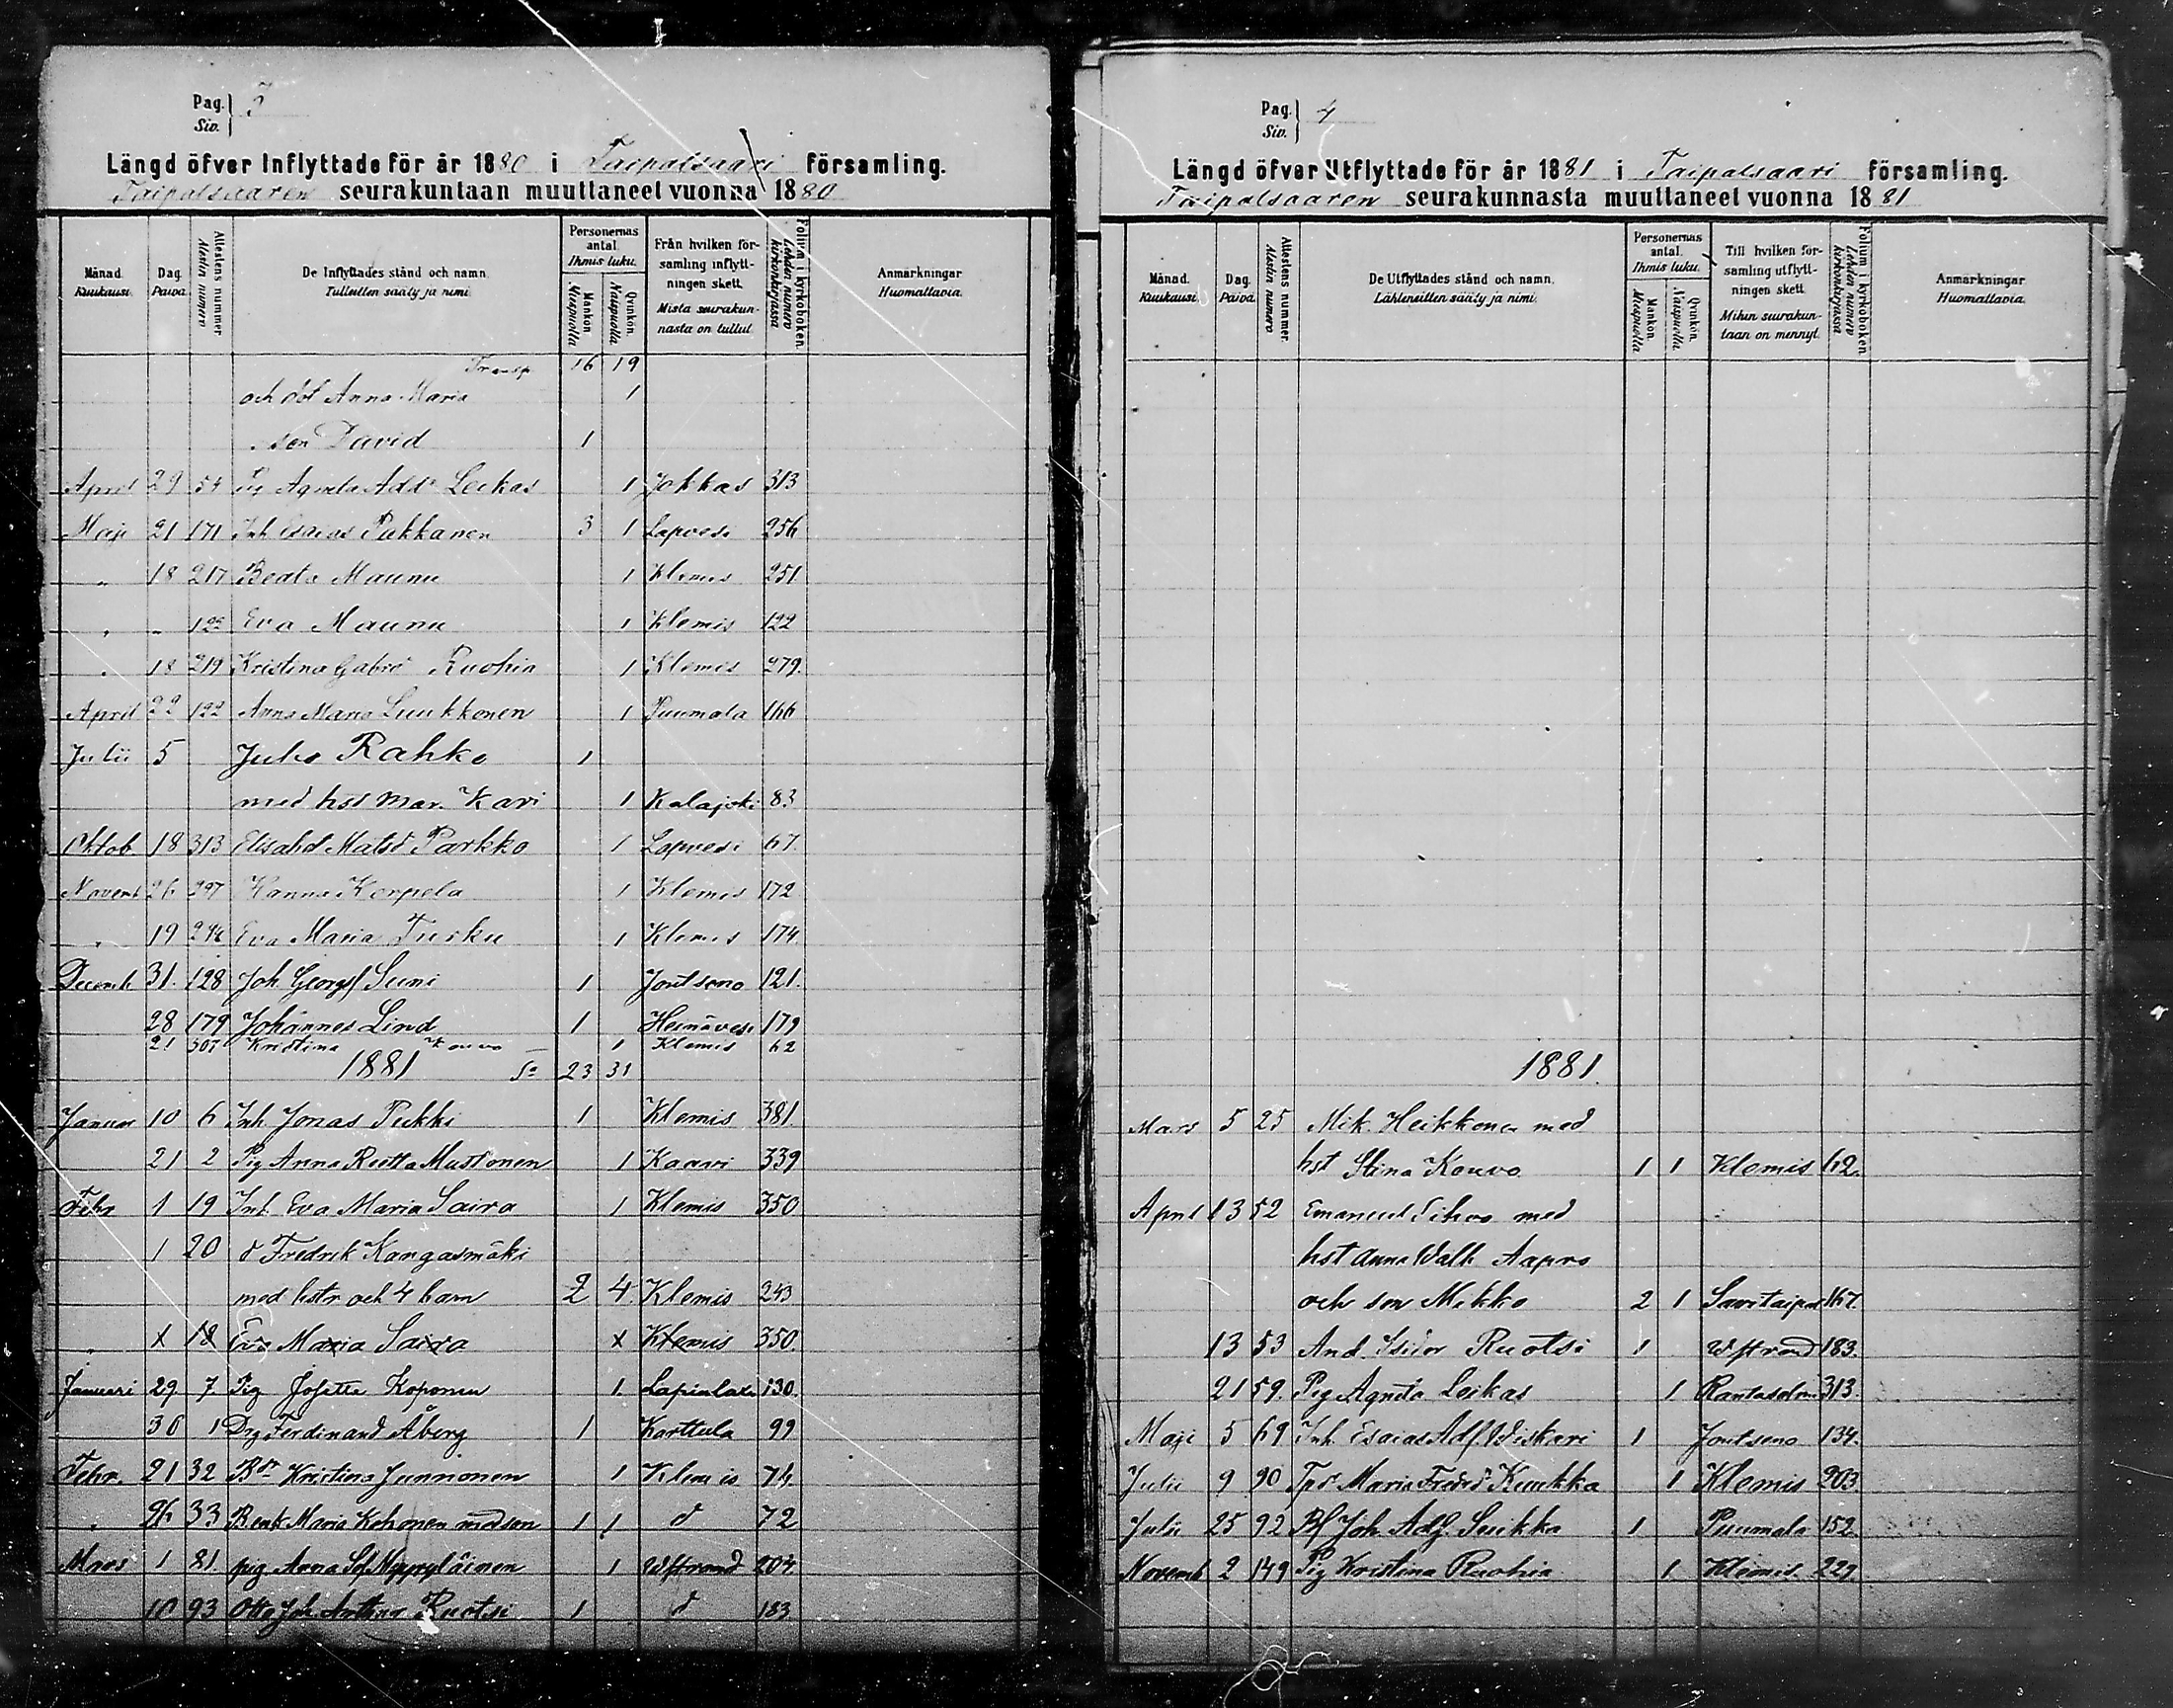 Pag. Siv. } 3
Längd öfver Inflyttade för år 1880 i Taipalsaari församling.
Taipalsaaren seurakuntaan muuttaneet vuonna 1880
Månad. Kuukausi. | Dag. Päivä. | Attestens nummer. Atestin numero | De Inflyttades stånd och namn. Tulleitten sääty ja nimi. | Personernas antal. Ihmis luku. Mankön. Miespuolia | Qvinkön. Naispuolia. | Från hvilken församling inflyttningen skett. Mista seurakunnasta on tullut. | Folium i kyrkoboken. Lehden numero kirkonkirjassa | Anmärkningar. Huomattavia.
Transp. 16 19
och dot Anna Maria 1
son David 1
April 29 54 Pig Agneta Addr Leikas 1 Jokkas 313
Maji 21 171 Inh Esaias Pakkanen 3 1 Lapvesi 256
" 18 217 Beata Maunu 1 Klemis 251
" " 122 Eva Maunu 1 Klemis 122
" 18 219 Kristina Gabrd Ruohia 1 Klemis 279.
April 22 122 Anna Maria Luukkonen 1 Puumala 166
Julii 5 Juho Rahko 1
med hst Mar. Kari 1 Kalajoki 83
Oktob. 18 313 Elisabet Matsd Parkko 1 Lapvesi 67.
Novemb 26 297 Hanna Kerpela 1 Klemis 172
" 19 296 Eva Maria Turku 1 Klemis 174.
Decemb 31. 128 Joh. Georgsf Suni 1 Joutseno 121.
28 179 Johannes Lind 1 Heinävesi 179
21 307 Kristina Kouvo 1 Klemis 62
1881 Sa 23 31
Januar 10 6 Inh. Jonas Pukki 1 Klemis 381
21 2 Pig Anna Reetta Mustonen 1 Kaavi 339
Febr 1 19 Inh. Eva Maria Saira 1 Klemis 350
1 20 d Fredrik Kangasmäki
med hstr och 4 barn 2 4 Klemis 243
" 1 18 Eva Maria Saira x Klemis 350.
Januari 29 7. Pig Josette Koponen 1. Lapinlax 130.
30 1 Drg Ferdinand Åberg 1 Karttula 99
Febr. 21 32 Bdr Kristina Junnonen 1 Klemis 74.
" 26 33 Benk Maria Kohonen med son 1 1 d 72
Mars 1 81. pig Anna Sof Myyryläinen 1 Wstrand 204.
10 93 Otto Joh. Arthur Ruotsi 1 d 183
Pag. Siv. } 4
Längd öfver Utflyttade för år 1881 i Taipalsaari församling.
Taipalsaaren seurakunnasta muuttaneet vuonna 1881
Månad. Kuukausi. | Dag. Päivä. | Attestens nummer. Atestin numero | De Utflyttades stånd och namn. Lähteneitten sääty ja nimi. | Personernas antal. Ihmis luku. Mankön. Miespuolia | Qvinkön. Naispuolia. | Till hvilken församling utflyttningen skett. Mihin seurakuntaan on mennyt. | Folium i kyrkoboken. Lehden numero kirkonkirjassa | Anmärkningar. Huomattavia.
1881.
Mars 5 25 Mik. Heikkonen med
hst Stina Kouvo 1 1 Klemis 62.
April 13 52 Emanuel Tihvo med
hst Anna Walb Aapro
och son Mikko 2 1 Savitaipal 167.
13 53 And. Isidor Ruotsi 1 Wstrand 183.
21 59. Pig Agneta Leikas 1 Rantasalmi 313.
Maji 5 69 Inh. Esaias Adf. Wiskari 1 Joutseno 134.
Julii 9 90 Tpd Maria Fredrd Kuukka 1 Klemis 203
Julii 25 92 Bf Joh. Adf. Suikka 1 Puumala 152
Novemb 2 149 Pig Kristina Ruohia 1 Klemis 229.